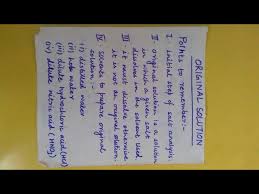 ORIGINAL SOLUTION
Points to remember:-
I initial step of salt analysis.
II original solution is a solution
in which a given salt
dissolves in the solvent used
III it must dissolve otherwise
it is not an original solution.
IV solvents to prepare original
solution:-
(i) distilled water
(ii) hot water
(iii) dilute hydrochloric acid (HCl)
(iv) dilute nitric acid (HNO3)